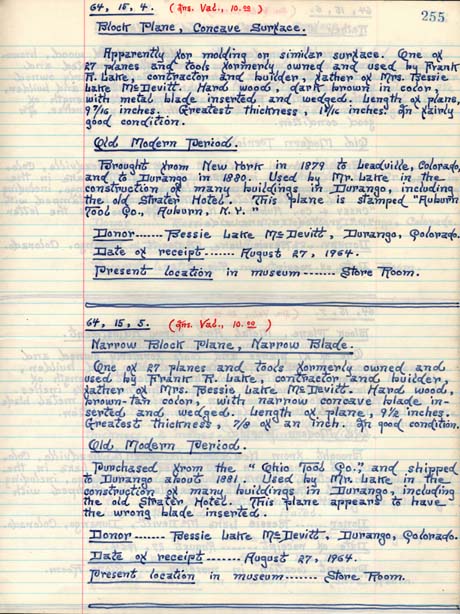 255
64, 15, 4. (Ins. Val., 10.00)
Block Plane, Concave Surface.
Apparently for molding or similar surface. One of
27 planes and tools formerly owned and used by Frank
R. Lake, contractor and builder, father of Mrs. Bessie
Lake McDevitt. Hard wood, dark brown in color,
with metal blade inserted and wedged. Length of plane,
9 7/16 inches. Greatest thickness, inches. In fairly
good condition.
Old Modern Period.
Brought from New York in 1879 to Leadville, Colorado,
and to Durango in 1880. Used by Mr. Lake in the
construction of many buildings in Durango, including
the old Strater Hotel. This plane is stamped "Auburn
Tool Co., Auburn, N.Y."
Donor------ Bessie Lake McDevitt, Durango, Colorado.
Date of receipt ------ August 27, 1964.
Present location in museum ------- Store Room.
64, 15, 5. (Ins. Val., 10.00)
Narrow Block Plane, Narrow Blade.
One of 27 planes and tools formerly owned and
used by Frank R. Lake, contractor and builder,
father of Mrs. Bessie Lake McDevitt. Hard wood,
brown-tan color, with narrow concave blade in-
serted and wedged. Length of plane, 9 1/2 inches.
Greatest thickness, 7/8 of an inch. In good condition.
Old Modern Period.
Purchased from the "Ohio Tool Co.", and shipped
to Durango about 1881. Used by Mr. Lake in the
construction of many buildings in Durango, including
the old Strater Hotel. This plane appears to have
the wrong blade inserted.
Donor ------ Bessie Lake McDevitt, Durango, Colorado.
Date of receipt ------- August 27, 1964.
Present location in museum ------- Store Room.